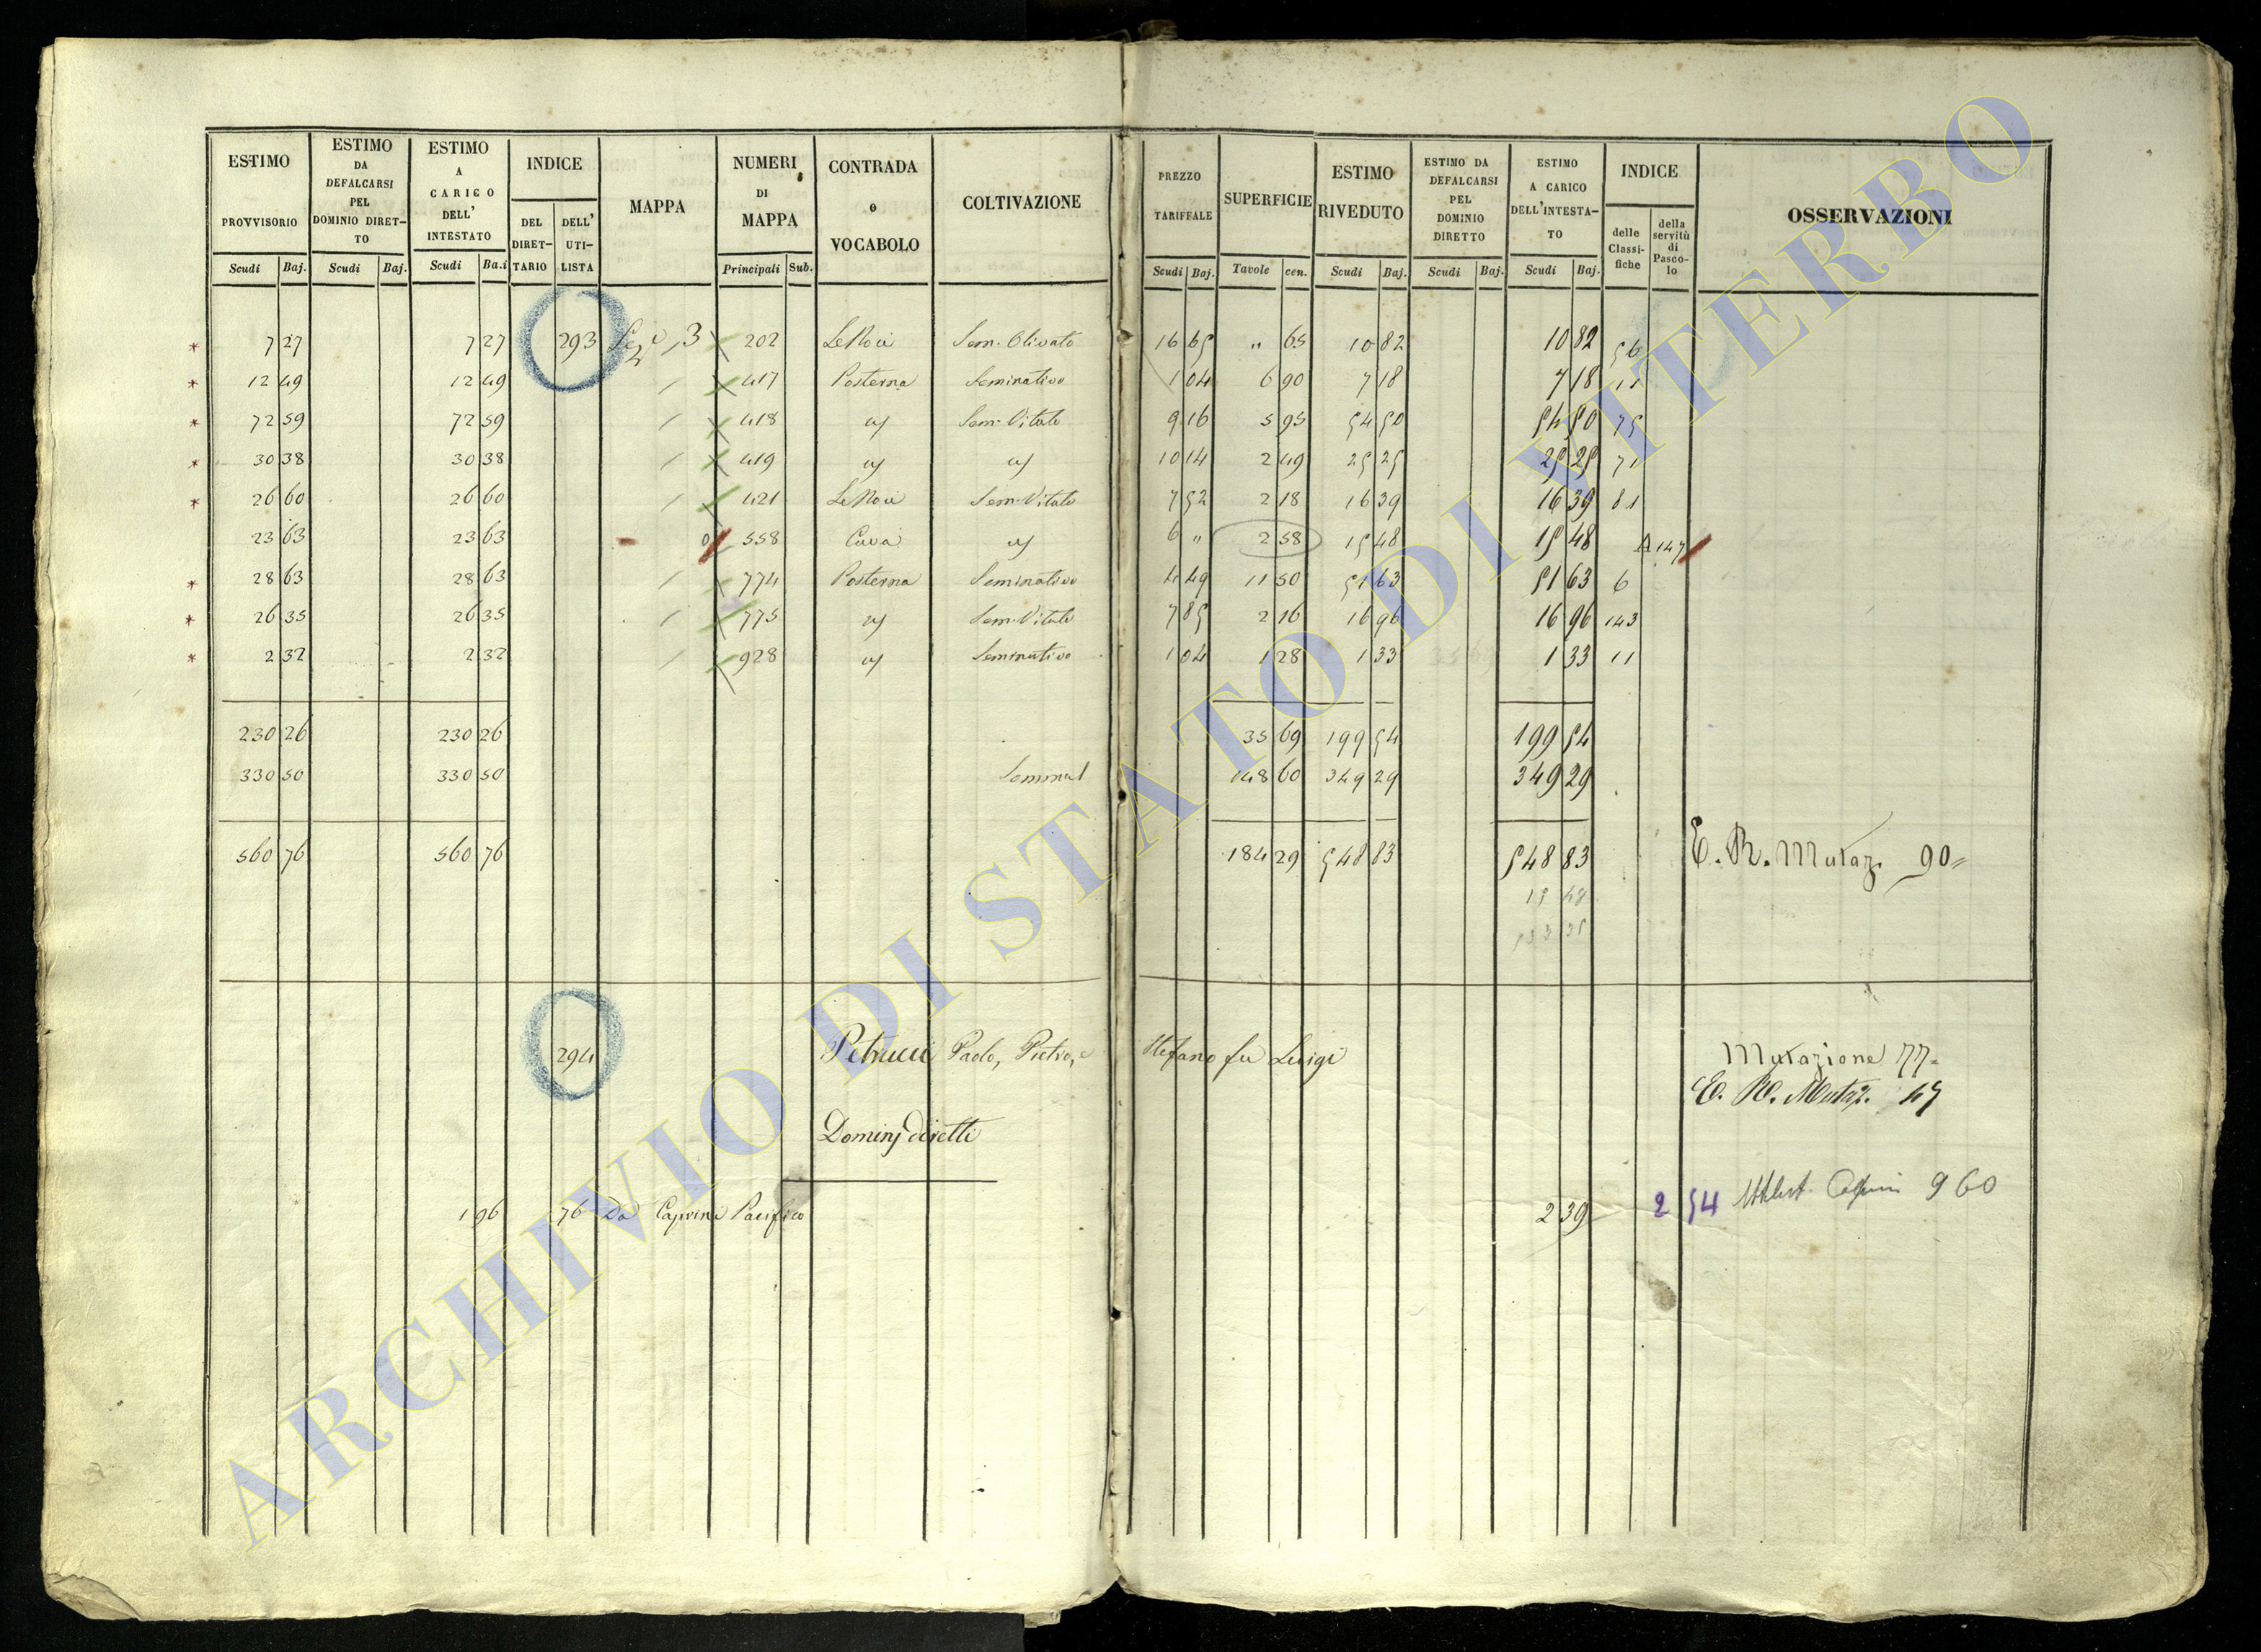 ESTIMO PROVVISORIO ESTIMO DA DEFALCARSI PEL DOMINIO DIRETTO ESTIMO A CARICO DELL' INTESTATO INDICE DEL DIRETTARIO DELL' UTILISTA MAPPA NUMERI DI MAPPA CONTRADA o VOCABOLO COLTIVAZIONE PREZZO TARIFFALE SUPERFICIE ESTIMO RIVEDUTO ESTIMO DA DEFALCARSI PEL DOMINIO DIRETTO ESTIMO A CARICO DELL'INTESTATO INDICE delle Classifiche della servitù di Pascolo OSSERVAZIONI
Scudi Baj. Scudi Baj. Scudi Ba.i Principali Sub. Scudi Baj. Tavole cen. Scudi Baj. Scudi Baj. Scudi Baj.
* 7 27 7 27 293 Sez.e 3 202 Le Noci Sem. Olivato 16 65 " 65 10 82 10 82 56
* 12 49 12 49 / 417 Posterna Seminativo 1 04 6 90 7 18 7 18 11
* 72 59 72 59 / 418 id Sem. Vitato 9 16 5 95 54 50 54 50 75
* 30 38 30 38 / 419 id id 10 14 2 49 25 25 25 25 71
* 26 60 26 60 / 421 Le Noci Sem. Vitato 7 52 2 18 16 39 16 39 81
23 63 23 63 558 Cava id 6 " 2 58 15 48 15 48 A 147
* 28 63 28 63 / 774 Posterna Seminativo 4 49 11 50 51 63 51 63 6
* 26 35 26 35 / 775 id Sem. Vitato 7 85 2 16 16 96 16 96 143
* 2 32 2 32 / 928 id Seminativo 1 04 1 28 1 33 1 33 11
230 26 230 26 35 69 199 54 199 54
330 50 330 50 148 60 349 29 349 29
560 76 560 76 184 29 548 83 548 83 E. R. Mutaz. 90
15 48
533 35
294 Petrucci Paolo, Pietro, e Stefano fu Luigi Mutazione 77
E. R. Mutaz. 47
Dominj diretti
1 96 76 Da Caprini Pacifico 2 39 2 54 960
ARCHIVIO DI STATO DI VITERBO